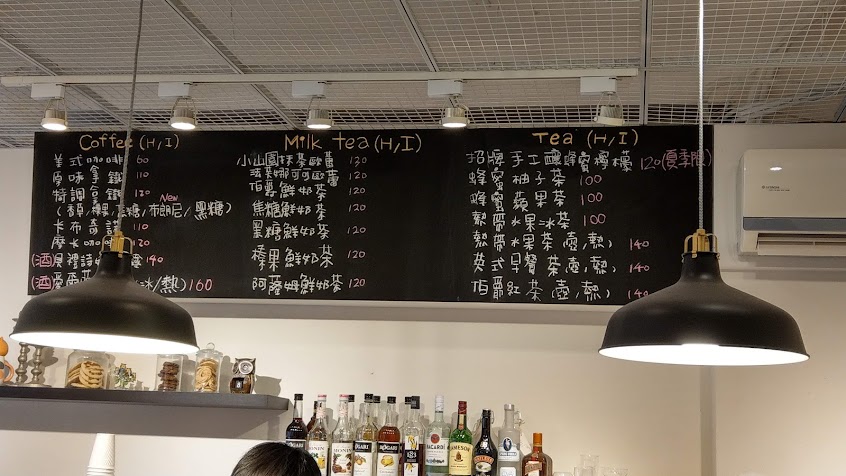 Coffee (H,I)
美式咖啡 60
原味拿鐵 110
特調拿鐵 120
New
焦糖/布朗尼/黑糖)
卡布奇諾 110
摩卡咖啡 120
(酒)貝禮詩 140
(酒) 冰/熱) 160
Milk tea (H,I)
小山園抹茶歐蕾 130
法芙娜可可歐蕾 120
伯爵鮮奶茶 120
焦糖鮮奶茶 120
黑糖鮮奶茶 120
榛果鮮奶茶 120
阿薩姆鮮奶茶 120
Tea (H,I)
招牌手工釀蜂蜜檸檬 120 (夏季限)
蜂蜜柚子茶 100
蜂蜜蘋果茶 100
熱帶水果冰茶 100
熱帶水果茶(壺/熱) 140
英式早餐茶(壺/熱) 140
伯爵紅茶(壺/熱) 140
BACARDI
JAMESON
BAILEYS